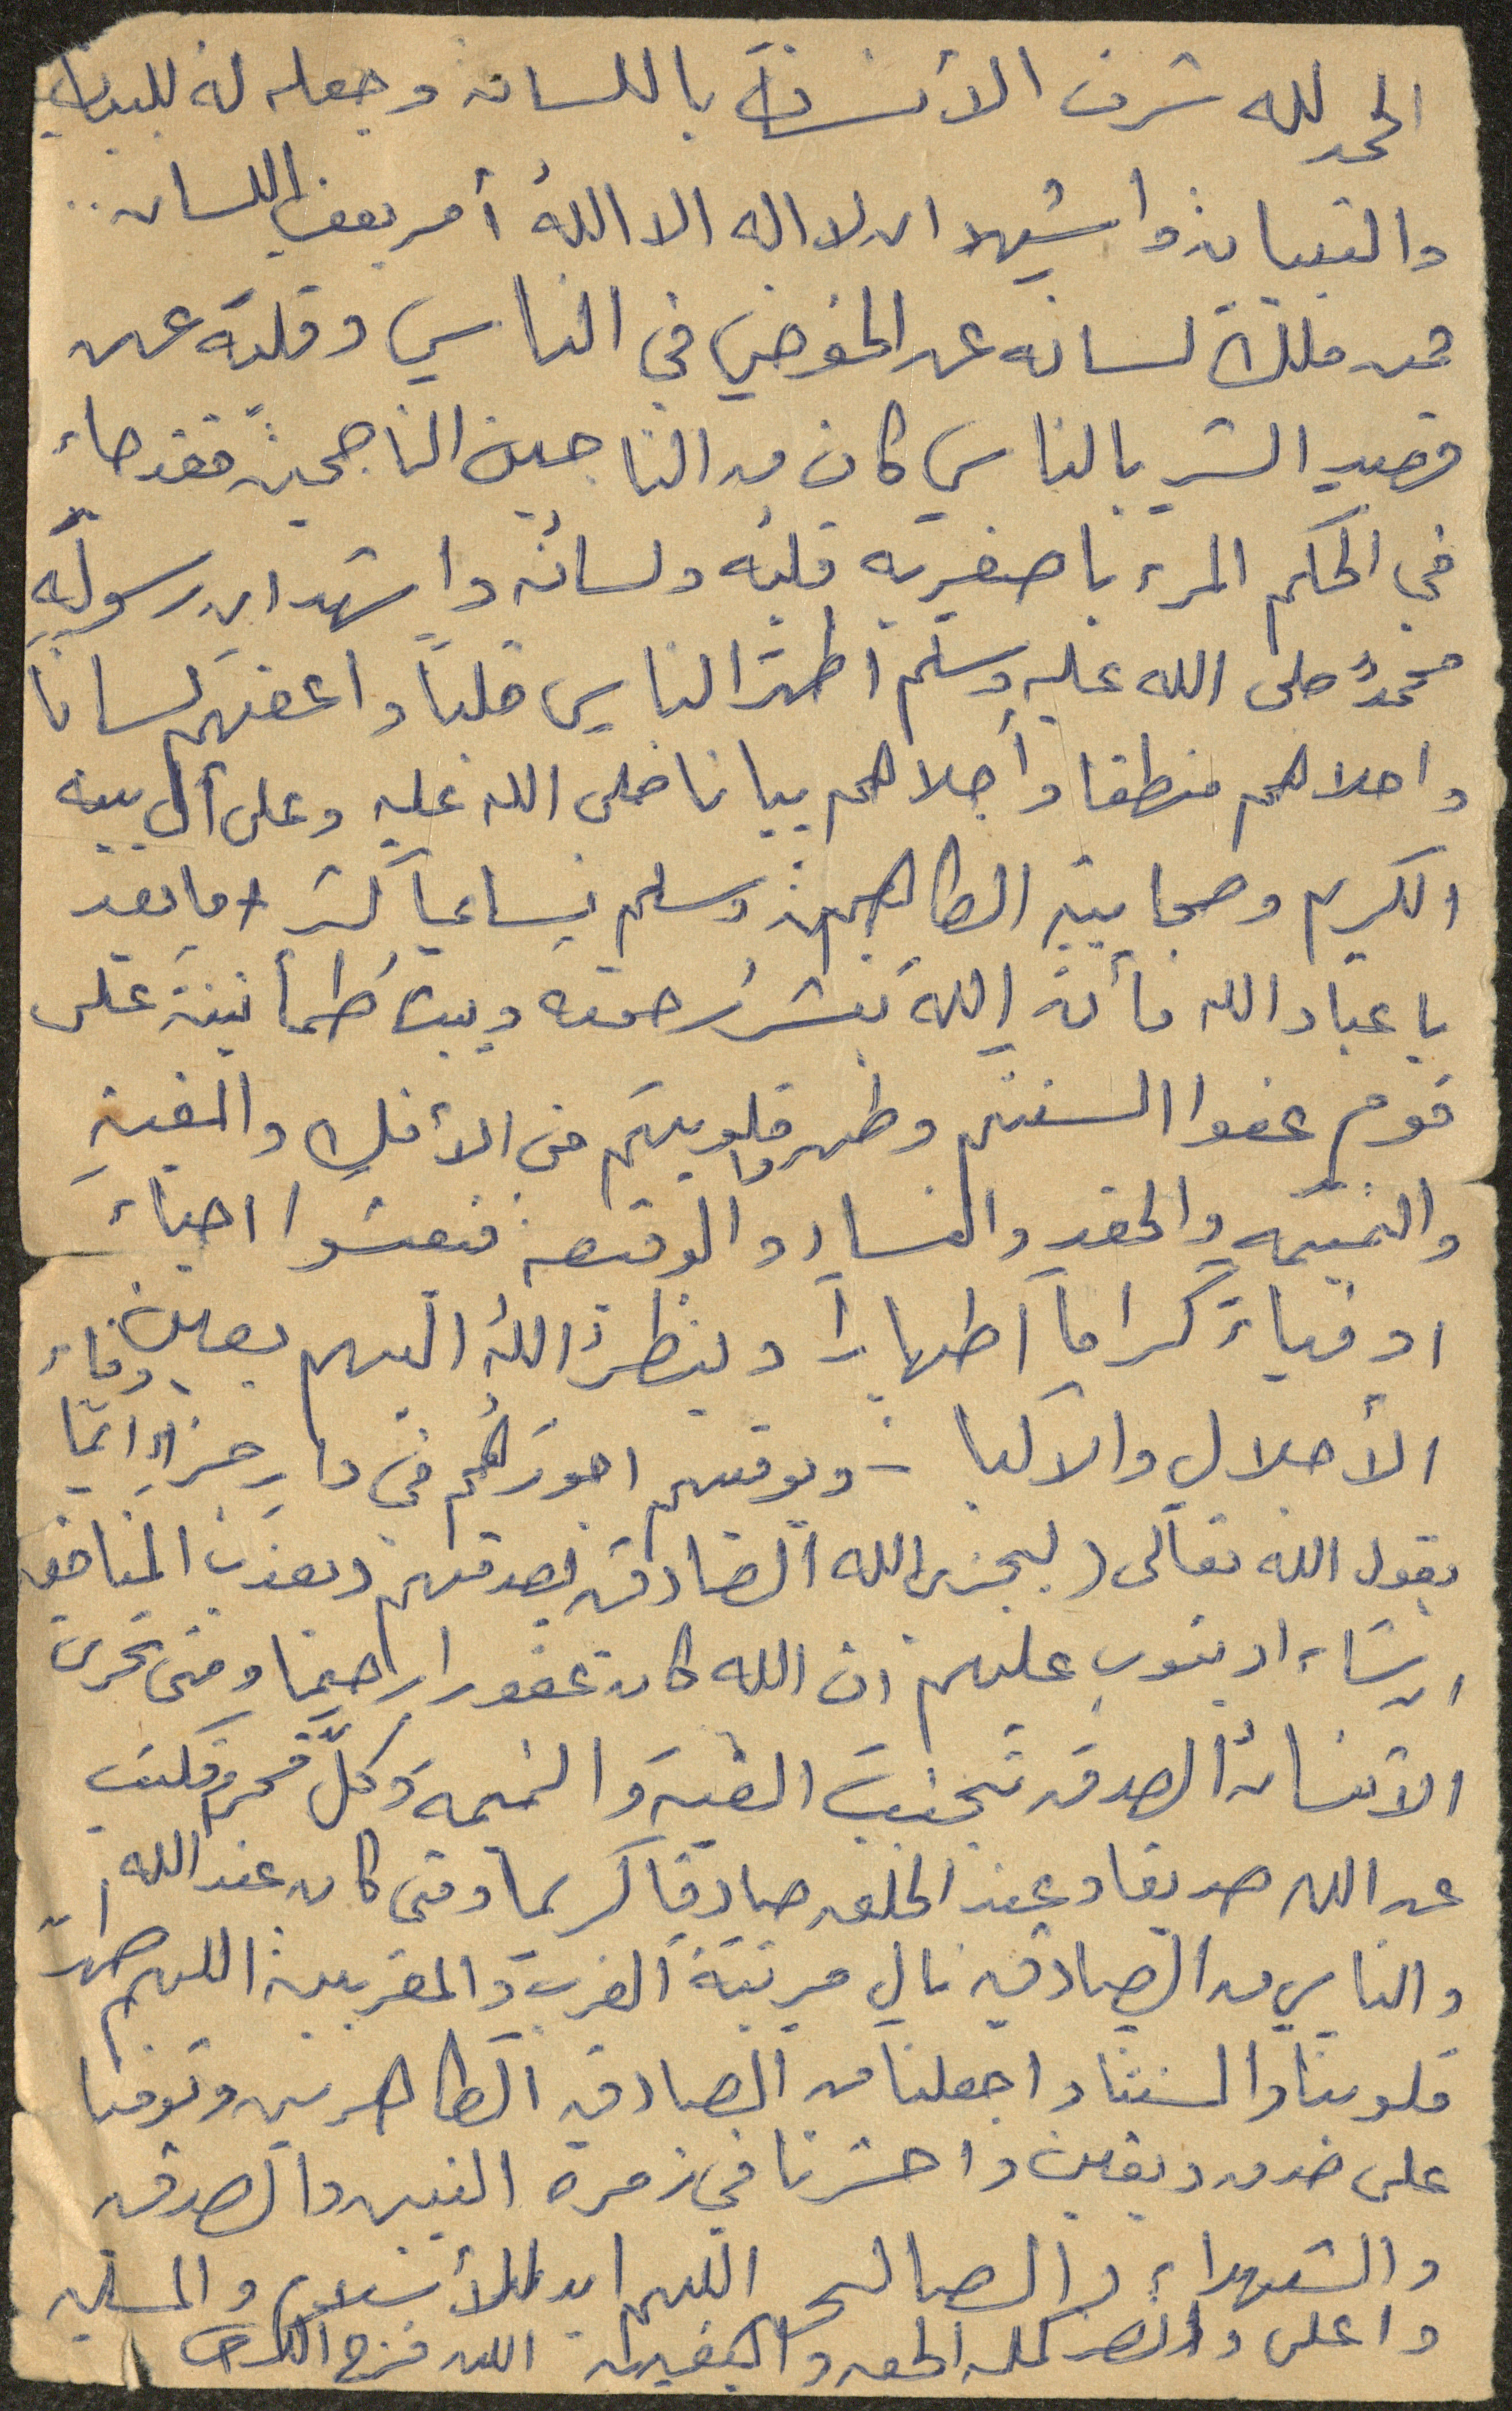 الحمد لله شرف الأنسان باللسان وجعله له للبيان
والتبيان واشهد ان لا اله الا اللهُ أمر بعف اللسان..
فمن ملك لسانه عن الخوض في الناس وقلبه عن
قصد الشر بالناس كان من الناجين الناجحين فقد جاء
في الحكم المرء باصغريه قلبه ولسانه واشهد ان رسوله
محمداً صلى الله عليه وسلم اطهر الناس قلباً واعفهم لساناً
واحلاهم منطقا وأجلاهم بيانا صلى الله عليه وعلى آل بيته
الكريم وصحابته الطاهرين وسلم تسليماً كثيراً اما بعد
يا عباد الله فأن اللهَ ينشرُ رحمته ويبث طمأنينة على
قوم عفوا السنتهم وطهروا قلوبهم من الأفك والغيبة
والنميمه والحقد والفساد والوقيعه فيعيشوا احياءَ
اوفياءَ كراماً اطهاراً وينظر اللهُ اليهم بعين وفاء
الأجلال والأكبار ويوفيهم اجورَهُم في دار جزاءٍ انما
يقول الله تعالى (ليجزى الله الصادقين بصدقهم ويعذب المنافقين
ان شاء او يتوب عليهم ان الله كان غفورا رحيما ومتى تحرى
الأنسانُ الصدق تجنبَ الغيبةَ والنميمه وكلَّ محرم فكتب
عند الله صديقا وعند الخلق صادقا كريما ومتى كان عند الله
والناس من الصادقين نال مرتبة القرب والمقربين اللهم طهرّ
قلوبنا والسنتنا واجعلنا من الصادقين الطاهرين وتوفنا
على صدق ويقين واحشرنا في زمرة النبيين والصديقين
والشهداء والصالحين اللهم ايد الأسلام والمسلمين
واعلى وانصر كلمة الحق واليقين اللهم فرج الكرب